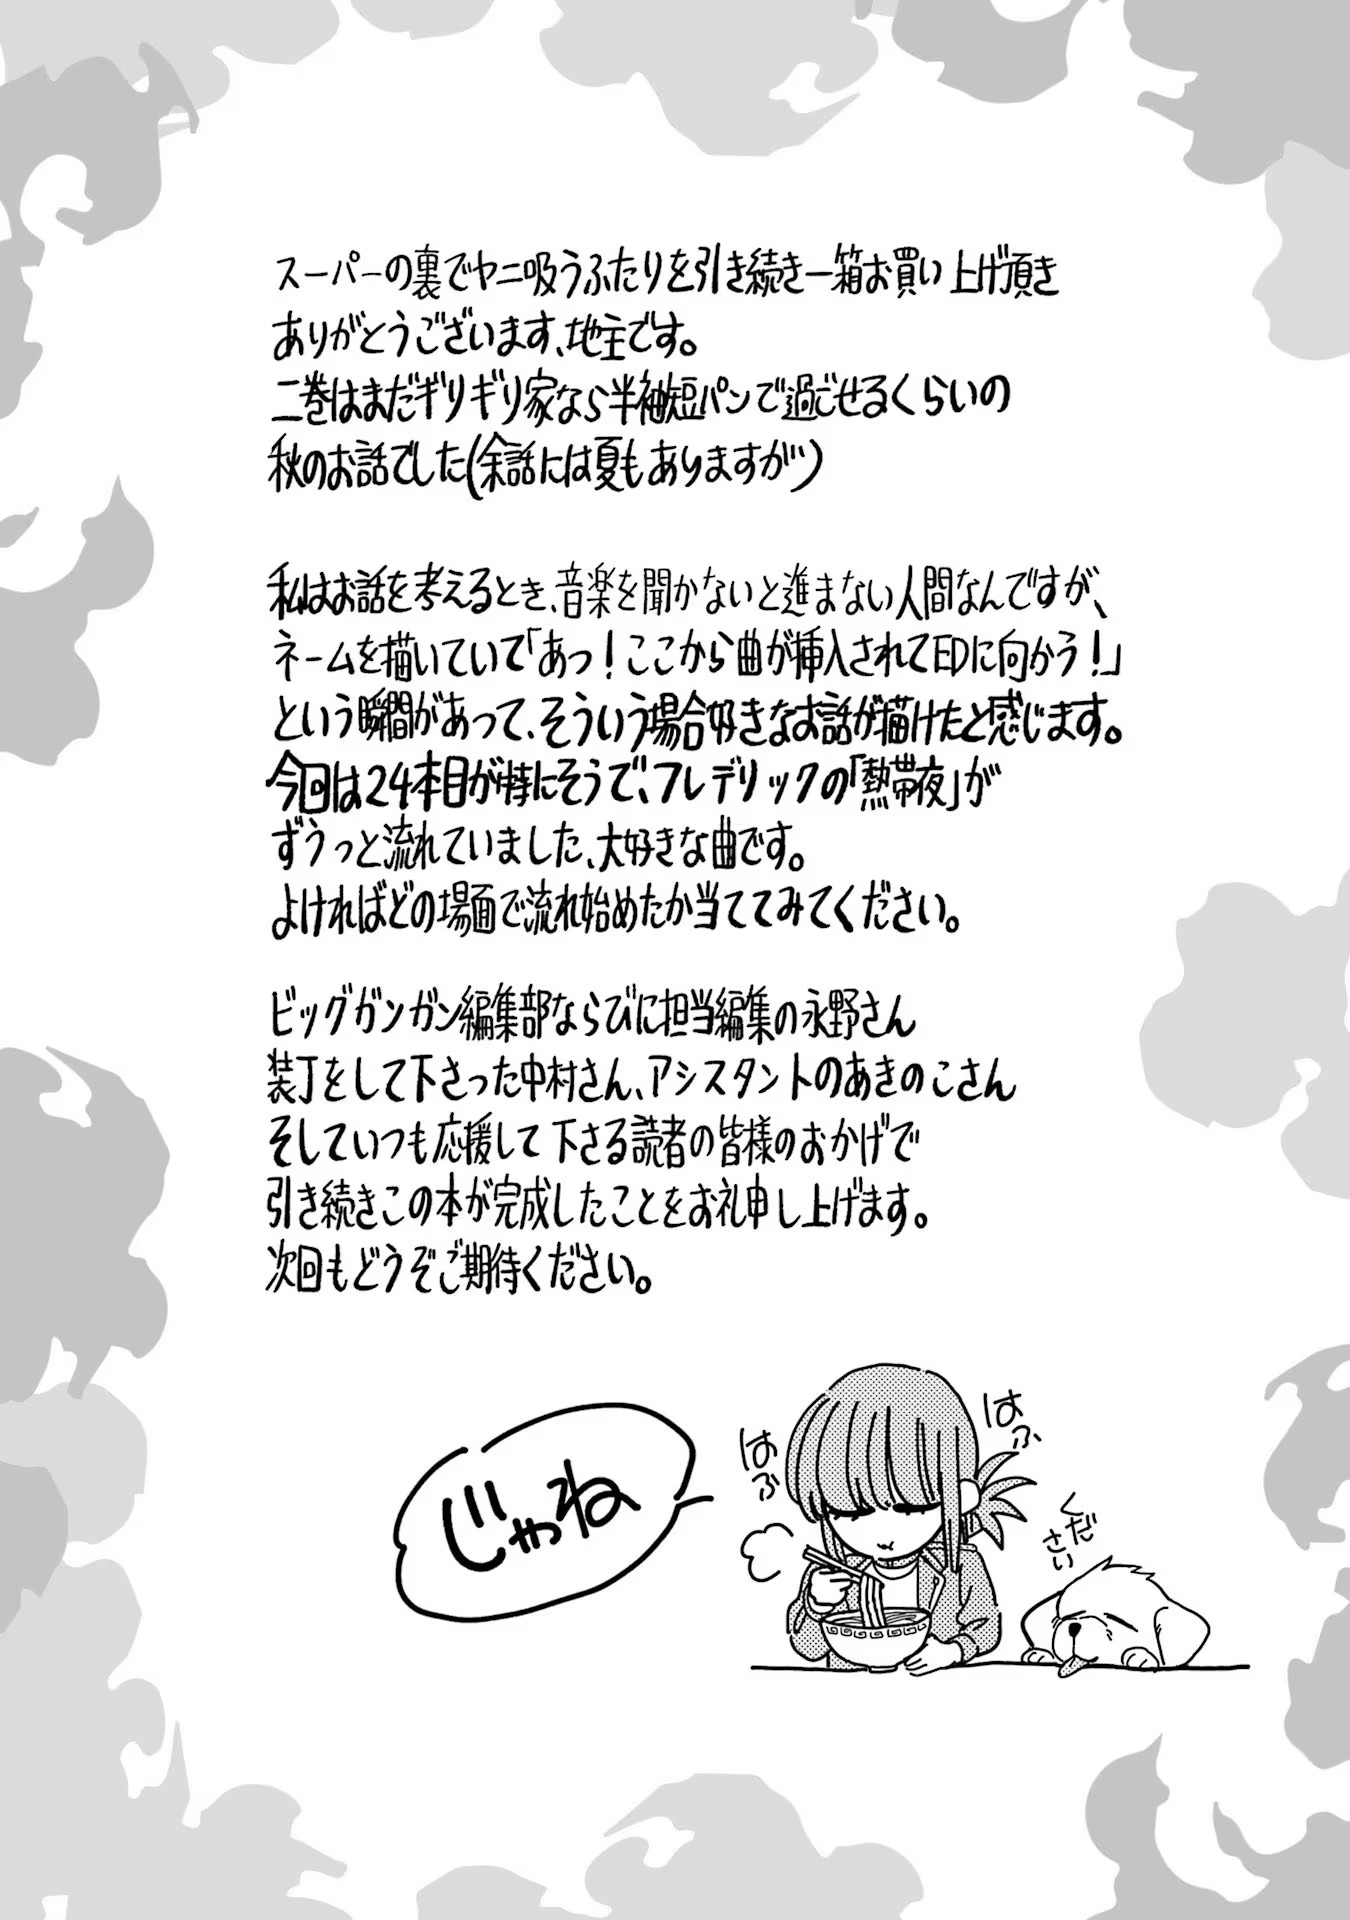 スーパーの裏でヤニ吸うふたりを引き続き一箱お買い上げ頂き
ありがとうございます、地主です。
二巻はまだギリギリ家なら半袖短パンで過ごせるくらいの
秋のお話でした(余話には夏もありますが)
私はお話を考えるとき、音楽を聞かないと進まない人間なんですが、
ネームを描いていて「あっ!ここから曲が挿入されてEDに向かう!」
という瞬間があって、そういう場合好きなお話が描けたと感じます。
今回は24本目が特にそうで、フレデリックの「熱帯夜」が
ずうっと流れていました、大好きな曲です。
よければどの場面で流れ始めたか当ててみてください。
ビッグガンガン編集部ならびに担当編集の永野さん
装丁をして下さった中村さん、アシスタントのあきのこさん
そしていつも応援して下さる読者の皆様のおかげで
引き続きこの本が完成したことをお礼申し上げます。
次回もどうぞご期待ください。
じゃね
はふ
はふ
ください